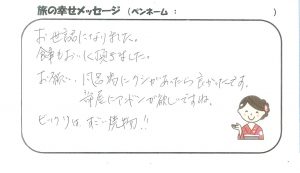 旅の幸せメッセージ (ペンネーム : )
お世話になりました。
食事もおいしく頂きました。
お願い、風呂場にクシがあったら良かったです。
部屋にアキンが欲しいですね。
ビックリは、すごい焼物!!